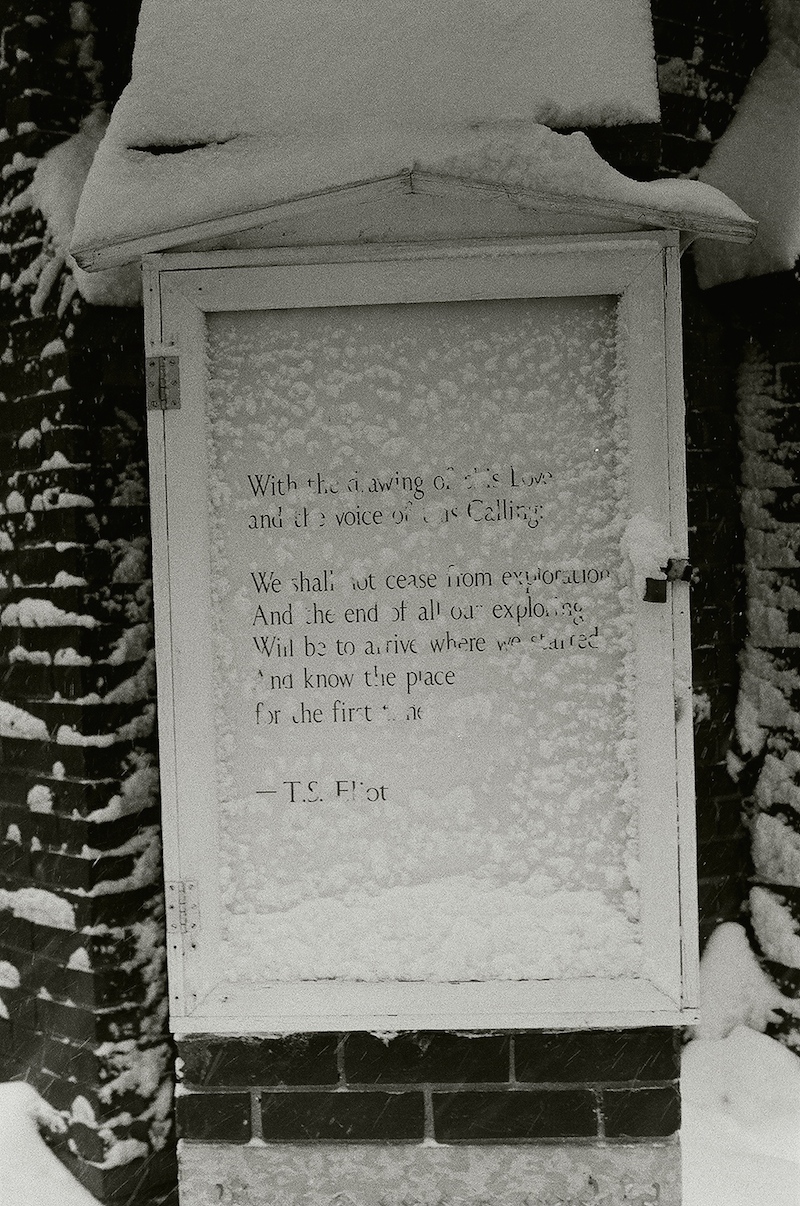 With the drawing of this Love
and the voice of this Calling:
We shall not cease from exploration
And the end of all our exploring
Will be to arrive where we started
And know the place
for the first time
— T.S. Eliot